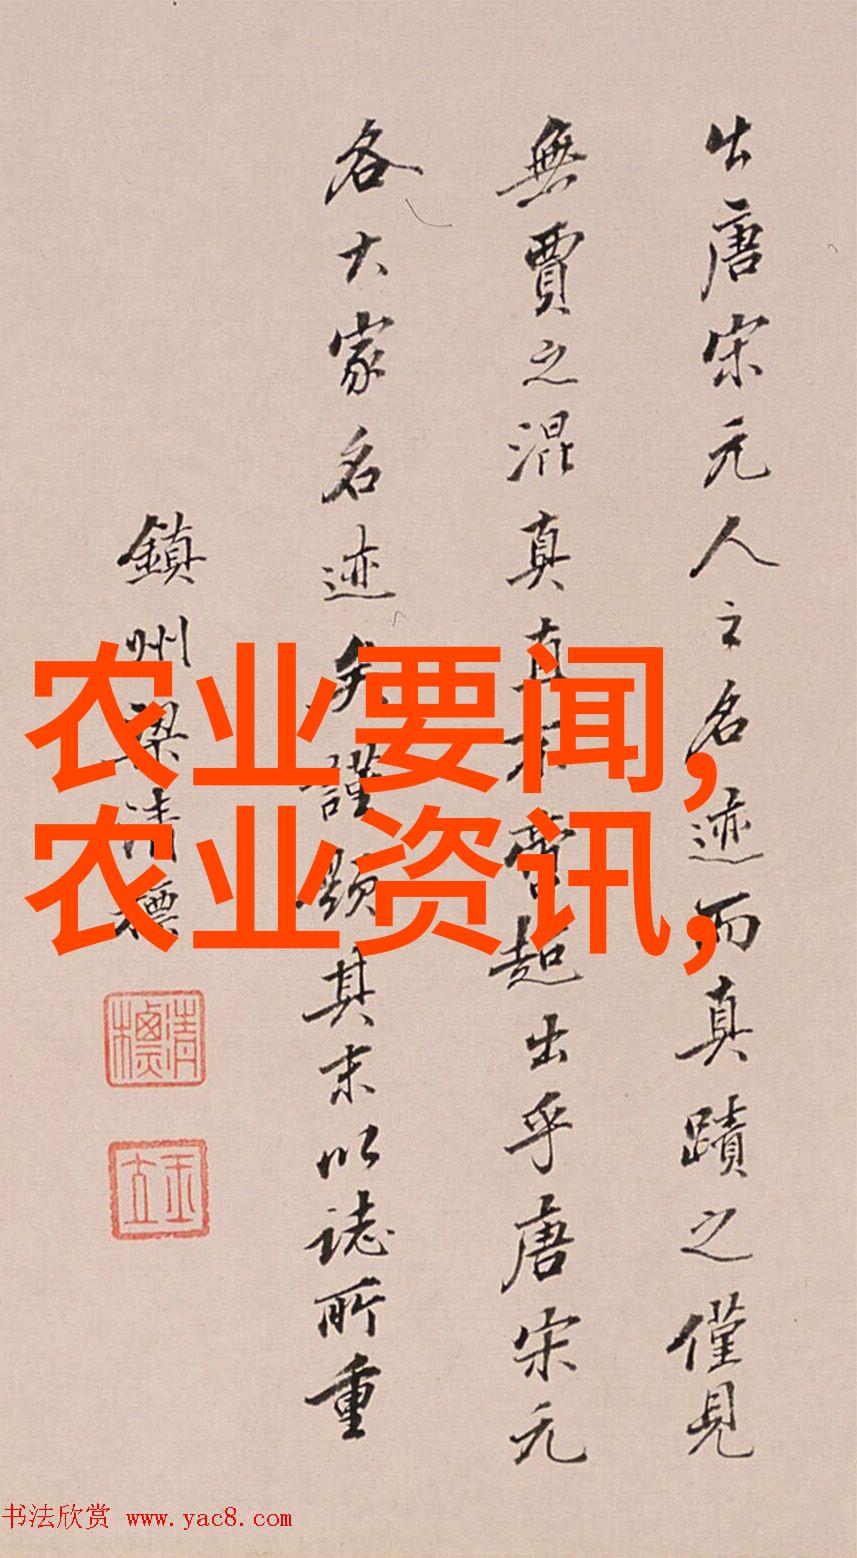 出唐宋元人之名迹而真蹟之僅見
無賈之混真真
超出乎唐宋元
各大家名迹矣謹題其末以誌所重
鎮州梁清標
清標
玉立
农业要闻,
农业资讯,
书法欣赏 www.yac8.com